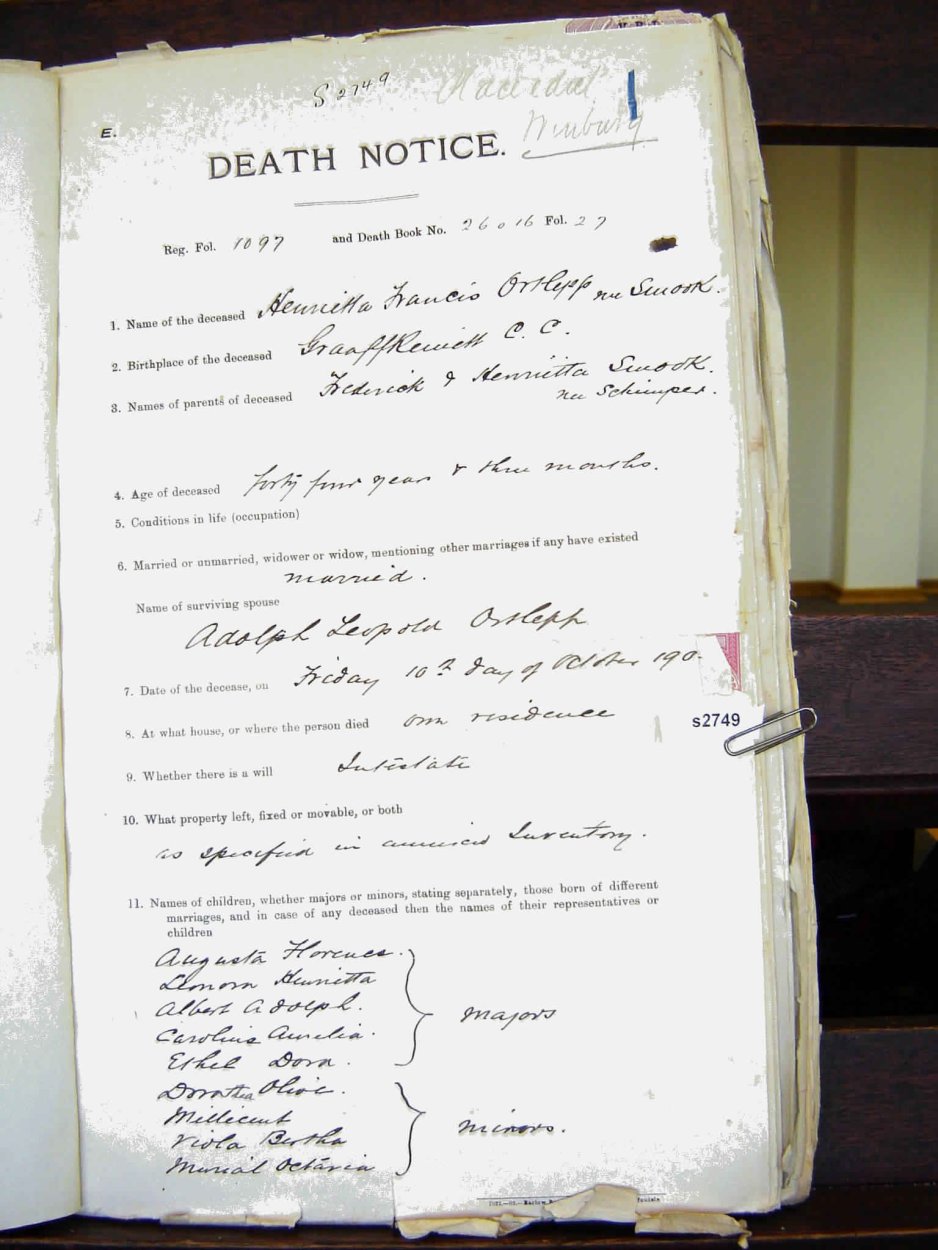 V. R. I.
S 2749
Winburg
E.
DEATH NOTICE.
Reg. Fol. 1097 and Death Book No. 26016 Fol. 27
1. Name of the deceased Henrietta Francis Ortlepp nee Smook.
2. Birthplace of the deceased Graaff Reinett C. C.
3. Names of parents of deceased Frederick & Henrietta Smook.
nee Schimper.
4. Age of deceased forty four years & three months.
5. Conditions in life (occupation)
6. Married or unmarried, widower or widow, mentioning other marriages if any have existed
married.
Name of surviving spouse
Adolph Leopold Ortlepp
7. Date of the decease, on Friday 10th day of October 190-
8. At what house, or where the person died own residence
s2749
9. Whether there is a will Intestate
10. What property left, fixed or movable, or both
as specified in annexed Inventory.
11. Names of children, whether majors or minors, stating separately, those born of different
marriages, and in case of any deceased then the names of their representatives or
children
Augusta Florence.
Leonora Henrietta
Albert Adolph. majors
Caroline Aurelia.
Ethel Dora.
Dorothea Olive.
Millicent
Viola Bertha minors.
Murial Octavia